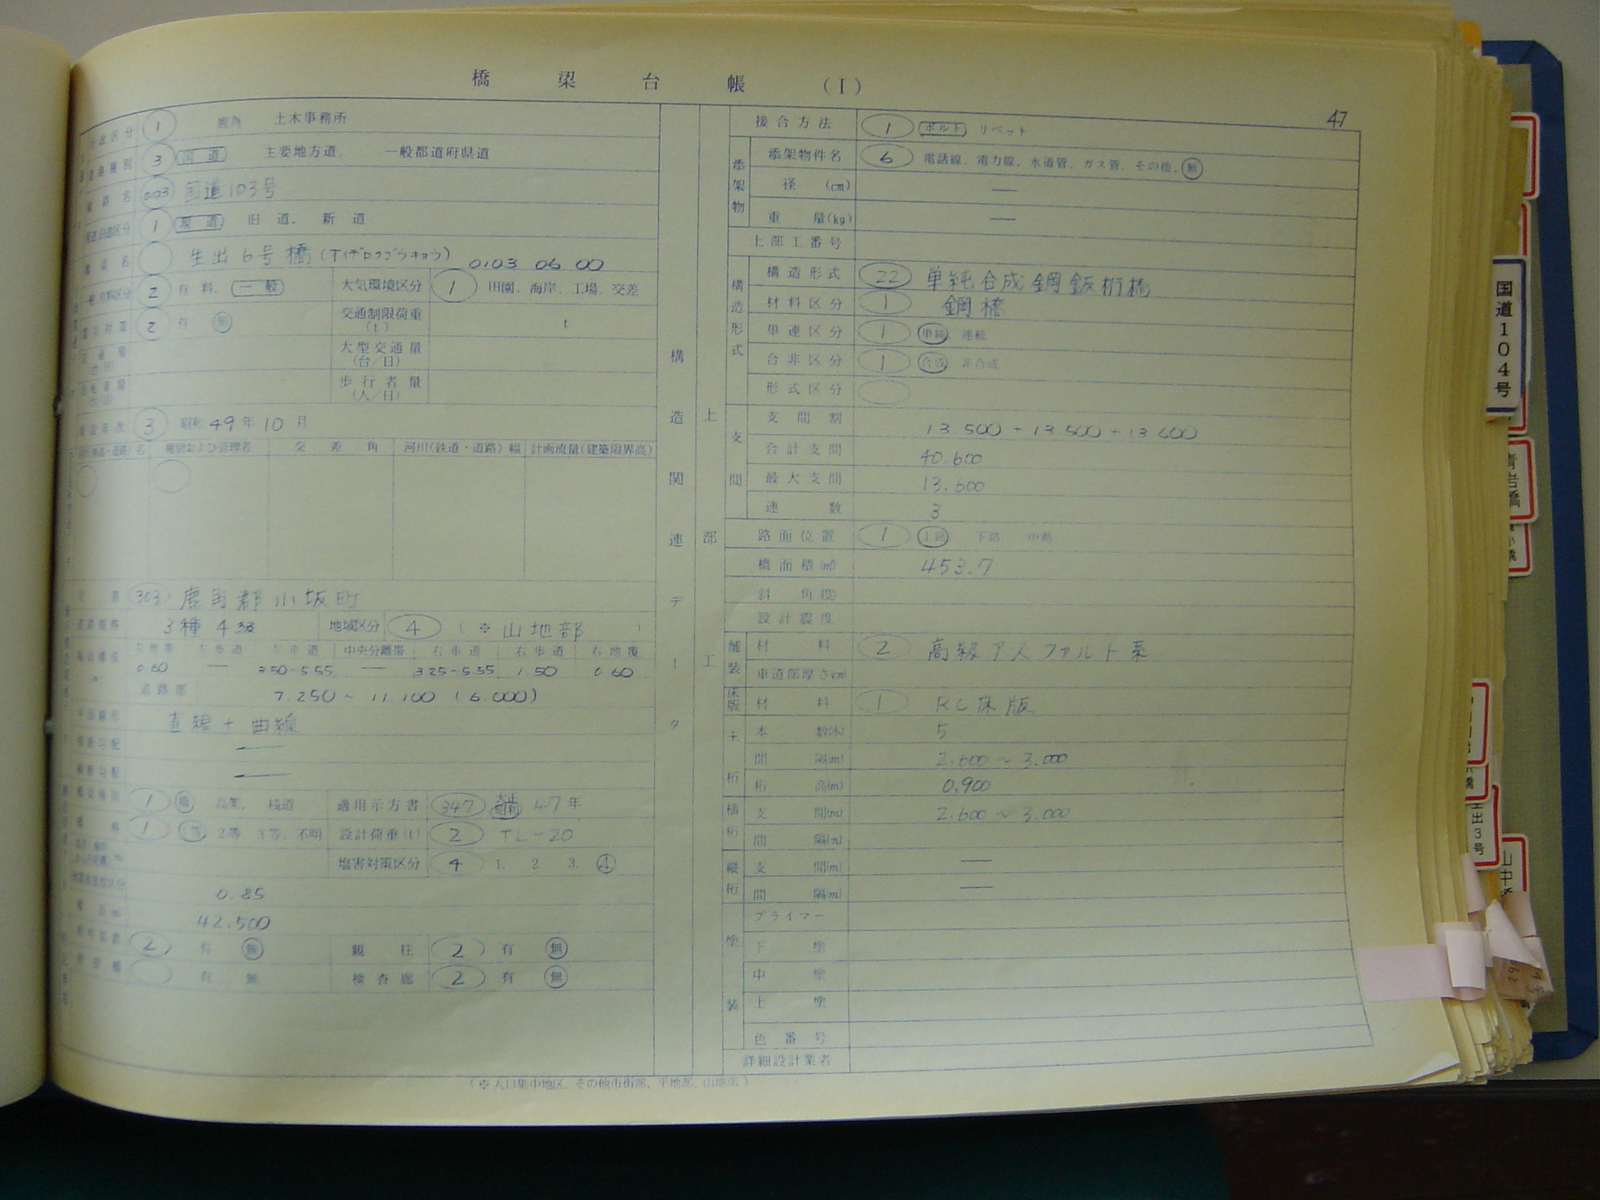 橋梁台帳 (I)
47
1 鹿角 土木事務所
3 国道 主要地方道、 一般都道府県道
0103 国道103号
1 現道 旧道、 新道
生出6号橋
0103 06 00
2 有料、 一般 大気環境区分 1 田園、海岸、工場、交差
2 有 無 交通制限荷重(t) t
大型交通量(台/日)
歩行者量(人/日)
3 昭和 49年 10月
種別および管理者 交差角 河川(鉄道・道路)幅 計画流量(建築限界高)
303 鹿角郡小坂町
3種4級 地域区分 4 (※ 山地部 )
左歩道 左車道 中央分離帯 右車道 右歩道 右地覆
0.60 — 3.50-5.55 — 3.25-5.55 1.50 0.60
道路部 7.250～11.100 (6.000)
直線+曲線
—
—
1 橋 高架、 桟道 適用示方書 347 大正 昭和 47年
1 1等 2等 3等、不明 設計荷重(t) 2 TL-20
塩害対策区分 4 1. 2 3. 4
0.85
42.500
2 有 無 親柱 2 有 無
有 無 検査廊 2 有 無
(※人口集中地区、その他市街部、平地部、山地部)
構造関連データ
上部工
接合方法 1 ボルト リベット
添架物
添架物件名 6 電話線、電力線、水道管、ガス管、その他、無
径 (cm) —
重量(kg) —
上部工番号
構造形式
構造形式 22 単純合成鋼鈑桁橋
材料区分 1 鋼橋
単連区分 1 単純 連続
合非区分 1 合成 非合成
形式区分
支間
支間割 13.500+13.500+13.600
合計支間 40.600
最大支間 13.600
連数 3
路面位置 1 上路 下路 中路
橋面積(㎡) 453.7
斜角度
設計震度
舗装
材料 2 高級アスファルト系
車道部厚さ(cm)
床版 材料 1 RC床版
主桁
本数(本) 5
間隔(m) 2.600～3.000
桁高(m) 0.900
横桁
支間(m) 2.600～3.000
間隔(m)
縦桁
支間(m) —
間隔(m) —
塗装
プライマー
下塗
中塗
上塗
色番号
詳細設計業者
国道104号
青岩橋
生出3号
山中